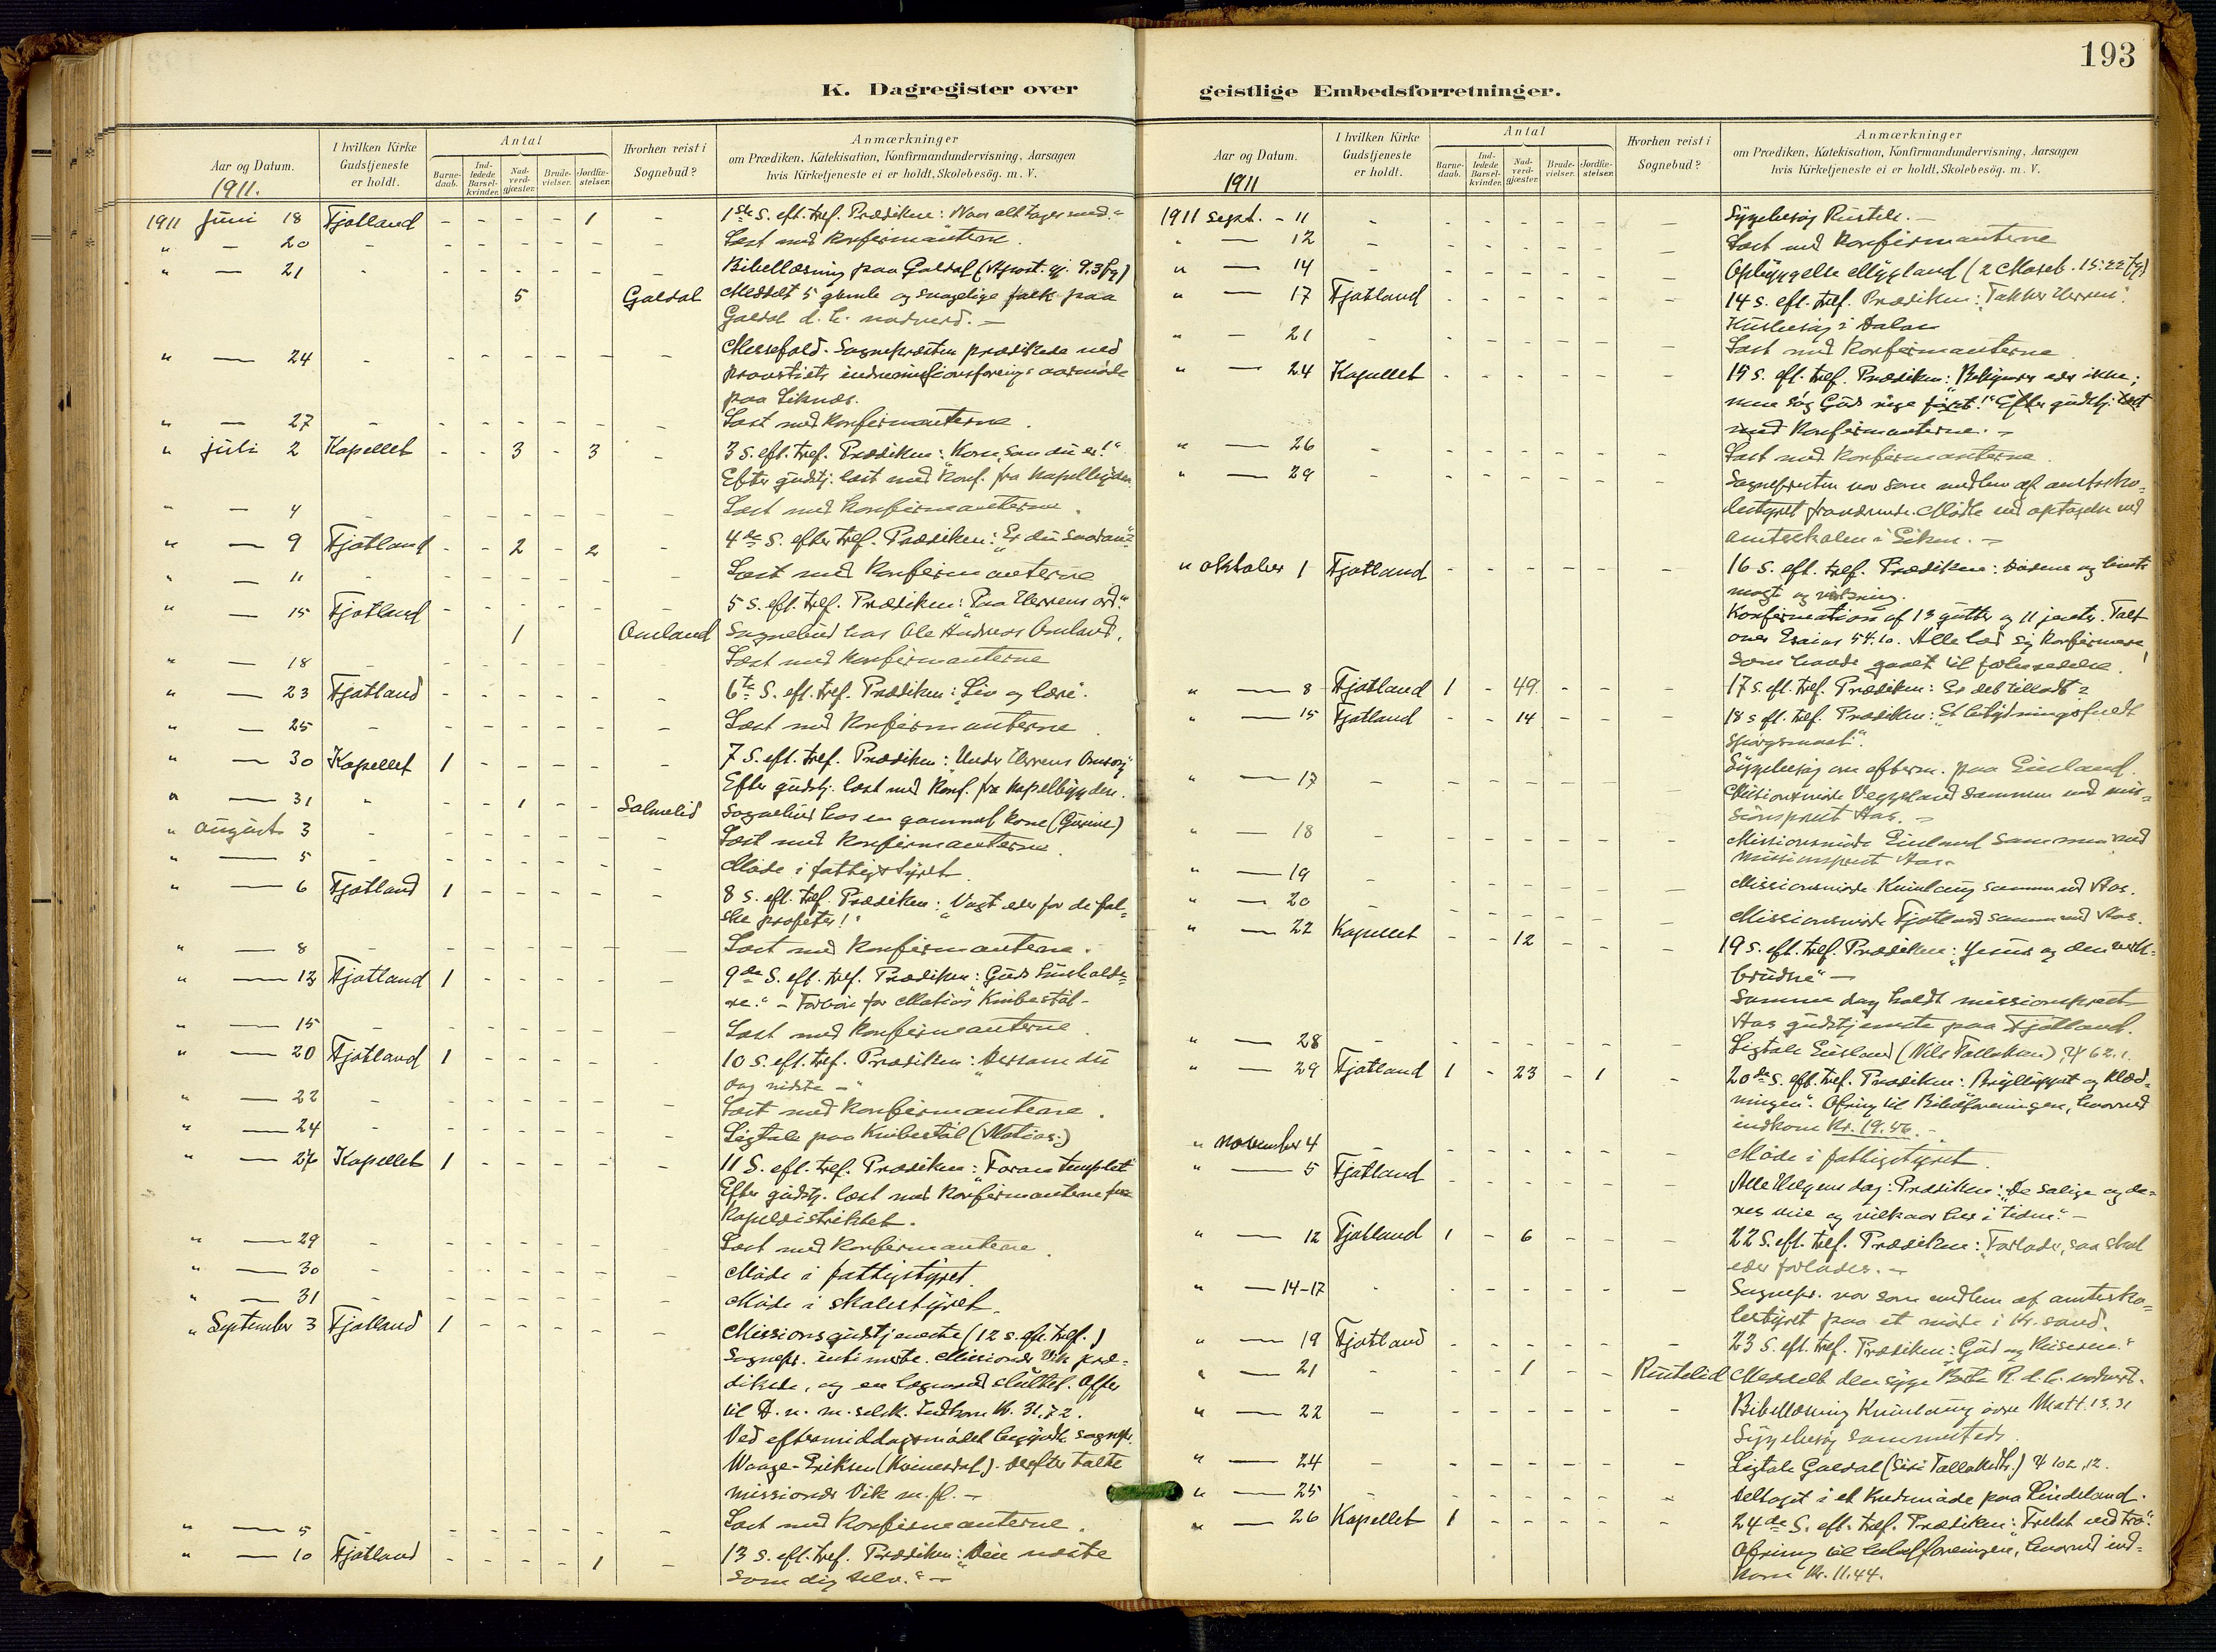 193
K. Dagregister over
geistlige Embedsforretninger.
Aar og Datum.
1911.
I hvilken Kirke
Gudstjeneste
er holdt.
Antal
Barne-
daab.
Ind-
ledede
Barsel-
kvinder.
Nad-
verd-
gjæster.
Brude-
vielser.
Jordfæ-
stelser.
Hvorhen reist i
Sognebud?
Anmærkninger
om Prædiken, Katekisation, Konfirmandundervisning, Aarsagen
hvis Kirketjeneste ei er holdt, Skolebesög. m. V.
1911 Juni 18 Fjotland - - - - 1 - 1ste S. eft. tref. Prædiken: Naar alt tages med."
" - 20 - - - - - - - Læst med konfirmanterne.
" - 21 - - - - - - - Bibellæsning paa Galdal (Apost. gj. 9.3 fg)
5 Galdal Meddelt 5 gamle og svagelige folk paa
Galdal d. h. nadverd. -
" - 24 - - - - - - - Messefald. Sognepresten prædikede ved
provstiets indremissionsforenings aarsmöde
paa Liknes.
" - 27 - - - - - - - Læst med konfirmanterne.
" juli 2 Kapellet - - 3 - 3 - 3 S. eft. tref. Prædiken: Kom, som du er!"
Efter gudstj. læst med konf. fra kapelbygden
" - 4 - - - - - - - Læst med konfirmanterne.
" - 9 Fjotland - - 2 - 2 - 4de S. efter tref. Prædiken: Er du saadan?"
" - 11 - - - - - - Læst med konfirmanterne
" - 15 Fjotland - - - - - - 5 S. eft. tref. Prædiken: "Paa Herrens ord."
1 Omland Sognebud hos Ole Andreas Omland.
" - 18 - - - - - - - Læst med konfirmanterne
" - 23 Fjotland - - - - - - 6te S. eft. tref. Prædiken: "Liv og lære".
" - 25 - - - - - - - Læst med konfirmanterne
" - 30 Kapellet 1 - - - - - 7 S. eft. tref. Prædiken: Under Herrens omsorg"
Efter gudstj. læst med konf. fra kapelbygden.
" - 31 " - - 1 - - Solmelid Sognebud hos en gammel kone (Gurine)
" august 3 - - - - - - - Læst med konfirmanterne
" - 5 - - - - - - - Möde i fattigstyret.
" - 6 Fjotland 1 - - - - - 8 S. eft. tref. Prædiken: "Vogt eder for de fal-
ske profeter!"
" - 8 - - - - - - - Læst med konfirmanterne.
" - 13 Fjotland 1 - - - - - 9de S. eft. tref. Prædiken: Guds husholde-
re." - Forbön for Matias Knibestöl -
" - 15 - - - - - - - Læst med konfirmanterne.
" - 20 Fjotland 1 - - - - - 10 S. eft. tref. Prædiken: "Dersom du
og vidste -"
" - 22 - - - - - - - Læst med konfirmanterne.
" - 24 - - - - - - - Ligtale paa Knibestöl (Matias.)
" - 27 Kapellet 1 - - - - - 11 S. eft. tref. Prædiken: "Foran templet"
Efter gudstj. læst med konfirmanterne fra
kapeldistriktet.
" - 29 - - - - - - - Læst med konfirmanterne.
" - 30 - - - - - - - Möde i fattigstyret.
" - 31 - - - - - - - Möde i skolestyret.
" September 3 Fjotland 1 - - - - - Missionsgudstjeneste (12 s. eft. tref.)
Sognepr. intimerte. Missionær Vik præ-
dikede, og en lægmand sluttet. Offer
til D. n. m. selsk. Indkom kr. 31,72.
Ved eftermiddagsmödet begyndte sognepr.
Waage-Eriksen (Kvinesdal). Derefter talte
missionær Vik m. fl. -
" - 5 - - - - - - - Læst med konfirmanterne.
" - 10 Fjotland - - - - 1 - 13 S. eft. tref. Prædiken: "Din næste
som dig selv." -
Aar og Datum.
1911
I hvilken Kirke
Gudstjeneste
er holdt.
Antal
Barne-
daab.
Ind-
ledede
Barsel-
kvinder.
Nad-
verd-
gjæster.
Brude-
vielser.
Jordfæ-
stelser.
Hvorhen reist i
Sognebud?
Anmærkninger
om Prædiken, Katekisation, Konfirmandundervisning, Aarsagen
hvis Kirketjeneste ei er holdt, Skolebesög. m. V.
1911 Sept. - 11 - - - - - - - Sygebesög -
" - 12 - - - - - - - Læst med konfirmanterne
" - 14 - - - - - - - Opbyggelse Mygland (2 Moseb. 15:22 fg)
" - 17 Fjotland - - - - - - 14 S. eft. tref. Prædiken: "Takker Herren".
Husbesög i Dalen
" - 21 - - - - - - - Læst med konfirmanterne.
" - 24 Kapellet - - - - - - 15 S. eft. tref. Prædiken: Bekymrer eder ikke;
men søg Guds rige först!" Efter gudstj. læst
med konfirmanterne. -
" - 26 - - - - - - - Læst med konfirmanterne.
" - 29 - - - - - - - Sognepresten var som medlem af amtssko-
lestyret fraværende. Mödte ved optagelse ved
amtsskolen i Eiken. -
" oktober 1 Fjotland - - - - - - 16 S. eft. tref. Prædiken: Dödens og livets
magt og virkning.
Konfirmation af 13 gutter og 11 jenter. Talt
over Esaias 54.10. Alle lod sig konfirmere
som havde gaaet til forberedelse.
" - 8 Fjotland 1 - 49 - - - 17 S. eft. tref. Prædiken: Er det tilladt?
" - 15 Fjotland - - 14 - - - 18 S eft. tref. Prædiken: "Et betydningsfuldt
spörgsmaal".
" - 17 - - - - - - - Sygebesög om efterm. paa Eiesland.
Missionsmöde Veggeland sammen med mis-
sionsprest Aas. -
" - 18 - - - - - - - Missionsmöde Eiesland sammen med
missionsprest Aas.
" - 19 - - - - - - - Missionsmöde Knivlaug sammen med Aas.
" - 20 - - - - - - - Missionsmöde Fjotland sammen med Aas.
" - 22 Kapellet - - 12 - - - 19 S. eft. tref. Prædiken: "Jesus og den verk-
brudne" -
Samme dag holdt missionsprest
Aas gudstjeneste paa Fjotland.
" - 28 - - - - - - - Ligtale Eiesland (Nils Tollaksen), Ψ 62.1.
" - 29 Fjotland 1 - 23 - 1 - 20de S. eft. tref. Prædiken: "Bryllupet og klæd-
ningen". Ofring til Bibelforeningen, hvorved
indkom kr. 19.46. -
" november 4 - - - - - - - Möde i fattigstyret.
" - 5 Fjotland - - - - - - Alle Helgens dag: Prædiken: "De salige og de-
res vei og vilkaar her i tiden." -
" - 12 Fjotland 1 - 6 - - - 22 S. eft. tref. Prædiken: "Forlader, saa skal
eder forlades. -
" - 14-17 - - - - - - - Sognepr. var som medlem af amtssko-
lestyret paa et möde i Kr. sand.
" - 19 Fjotland - - - - - - 23 S. eft. tref. Prædiken: Gud og Keiseren."
" - 21 - - - 1 - - Rustelid Meddelt den syge R. d. h. nadverd.
" - 22 - - - - - - - Bibellæsning Knivlaug over Matt. 13,31
Sygebesög sammesteds.
" - 24 - - - - - - - Ligtale Galdal (Siri Tollaksdtr.) Ψ 102,12.
" - 25 - - - - - - - Deltaget i et kredsmöde paa Lindeland.
" - 26 Kapellet 1 - - - - - 24de S. eft. tref. Prædiken: "Frelst ved tro".
Ofring til bibelforeningen, hvorved ind-
kom kr. 11.44.